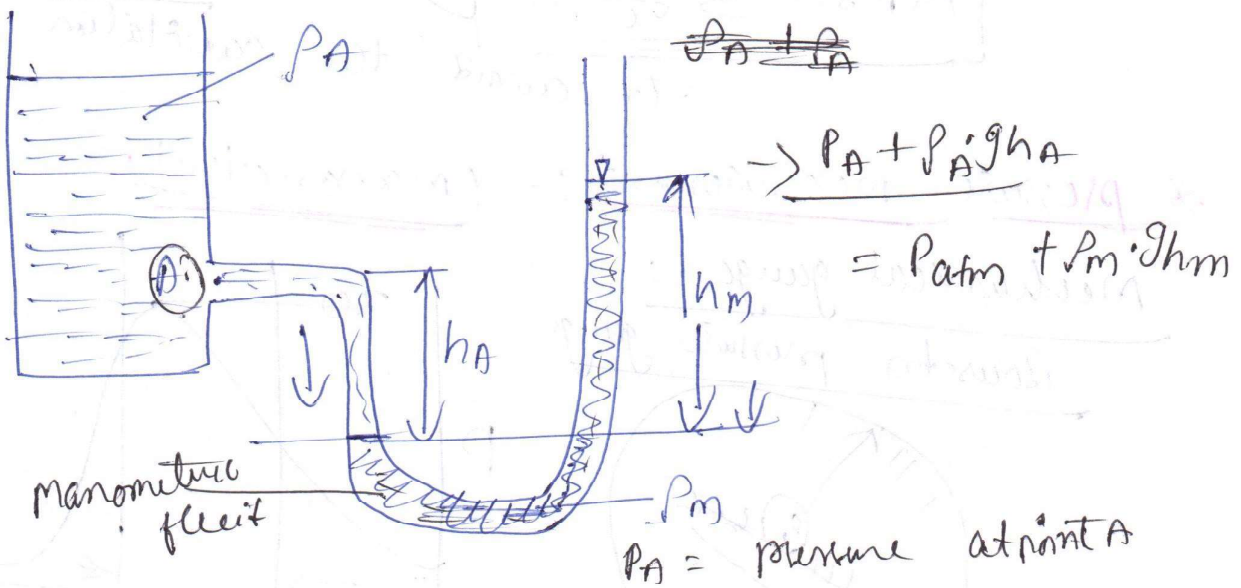 ρA
→ PA + ρA·ghA
= Patm + ρm·ghm
A
hA
hm
Manometric
fluid
ρm
PA = pressure at point A